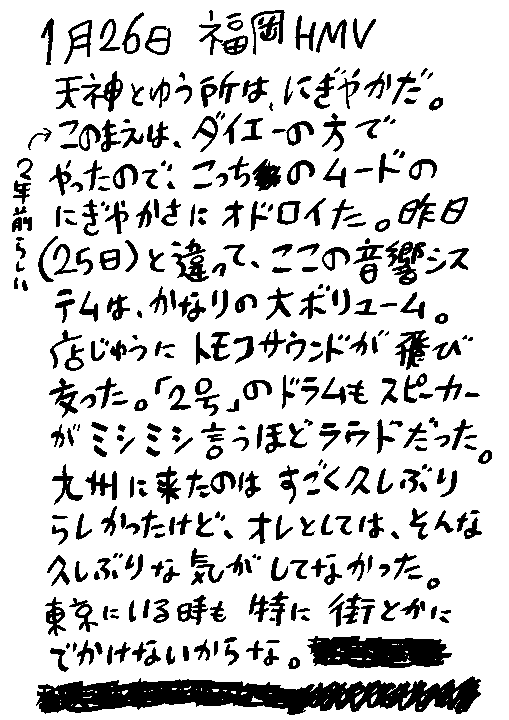 1月26日 福岡HMV
天神とゆう所は、にぎやかだ。
→このまえは、ダイエーの方で
2年前らしい
やったので、こっちのムードの
にぎやかさにオドロイた。昨日
(25日)と違って、ここの音響シス
テムは、かなりの大ボリューム。
店じゅうにトモコサウンドが飛び
交った。「2号」のドラムもスピーカー
がミシミシ言うほどラウドだった。
九州に来たのはすごく久しぶり
らしかったけど、オレとしては、そんな
久しぶりな気がしてなかった。
東京にいる時も特に街とかに
でかけないからな。